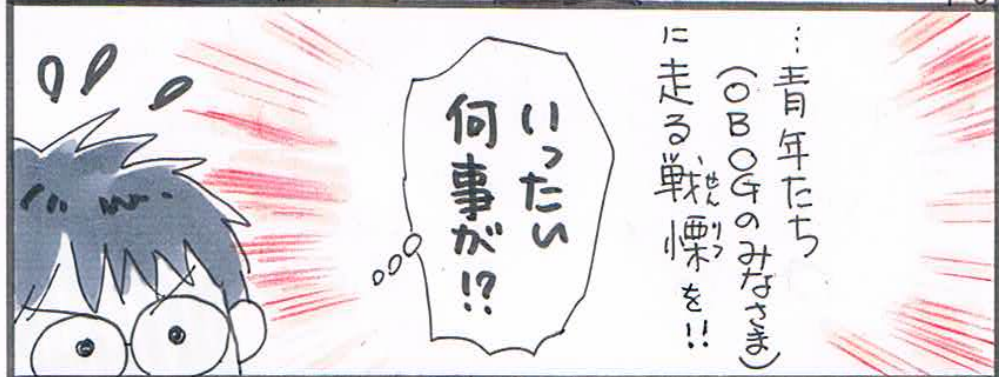 …青年たち
(OBOGのみなさま)
に走る戦慄を!!
せんりつ
いったい
何事が!?